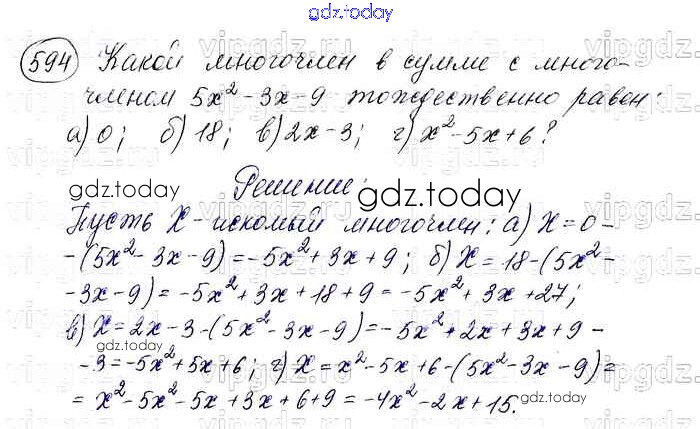 gdz.today
594 Какой многочлен в сумме с много-
членом 5x² - 3x - 9 тождественно равен:
а) 0; б) 18; в) 2x - 3; г) x² - 5x + 6?
gdz.today
Решение:
gdz.today
Пусть X - искомый многочлен: а) X = 0 -
- (5x² - 3x - 9) = -5x² + 3x + 9; б) X = 18 - (5x² -
- 3x - 9) = -5x² + 3x + 18 + 9 = -5x² + 3x + 27;
в) X = 2x - 3 - (5x² - 3x - 9) = -5x² + 2x + 3x + 9 -
gdz.today
- 3 = -5x² + 5x + 6; г) X = x² - 5x + 6 - (5x² - 3x - 9) =
= x² - 5x² - 5x + 3x + 6 + 9 = -4x² - 2x + 15.
gdz.today